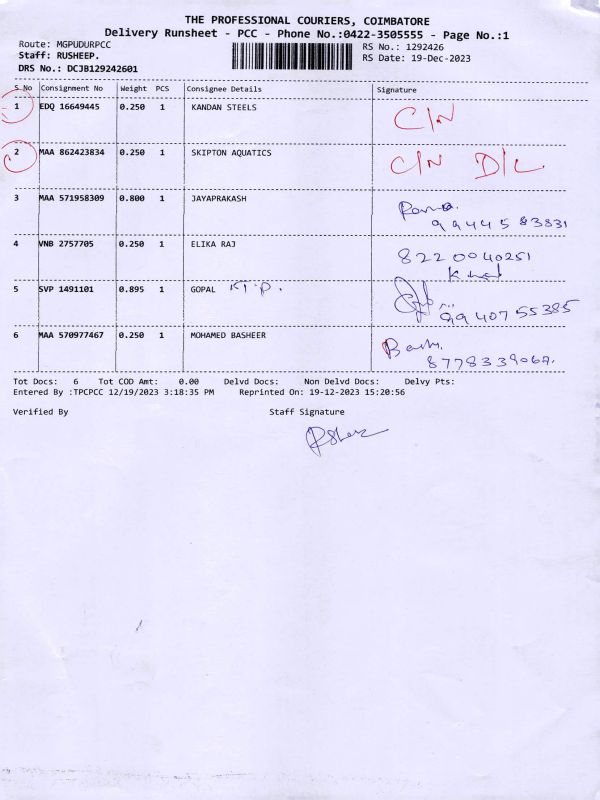 THE PROFESSIONAL COURIERS, COIMBATORE
Delivery Runsheet - PCC - Phone No.:0422-3505555 - Page No.:1
Route: MGPUDURPCC RS No.: 1292426
Staff: RUSHEEP. RS Date: 19-Dec-2023
DRS No.: DCJB129242601
S No Consignment No Weight PCS Consignee Details Signature
1 EDQ 16649445 0.250 1 KANDAN STEELS C/N
2 MAA 862423834 0.250 1 SKIPTON AQUATICS C/N D/L
3 MAA 571958309 0.800 1 JAYAPRAKASH
9944583831
4 VNB 2757705 0.250 1 ELIKA RAJ 8220040251
5 SVP 1491101 0.895 1 GOPAL K.T.P.
9940755385
6 MAA 570977467 0.250 1 MOHAMED BASHEER
8778339067.
Tot Docs: 6 Tot COD Amt: 0.00 Delvd Docs: Non Delvd Docs: Delvy Pts:
Entered By :TPCPCC 12/19/2023 3:18:35 PM Reprinted On: 19-12-2023 15:20:56
Verified By Staff Signature